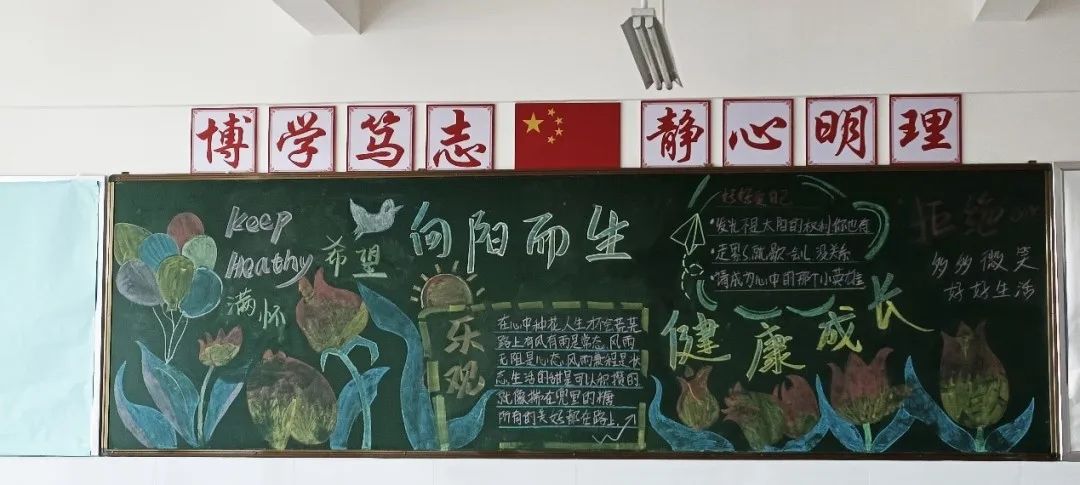 博学笃志
静心明理
Keep
Heathy
希望
满怀
向阳而生
乐观
在心中种花人生才不会荒芜
路上有风有雨是常态,风雨
无阻是心态,风雨兼程是状
态,生活的甜是可以积攒的
就像揣在兜里的糖
所有的美好都在路上
好好爱自己
·发光不是太阳的权利你也有
·走累了,就歇会儿没关系
·请成为心中的那个小英雄
健康成长
拒绝
多多微笑
好好生活